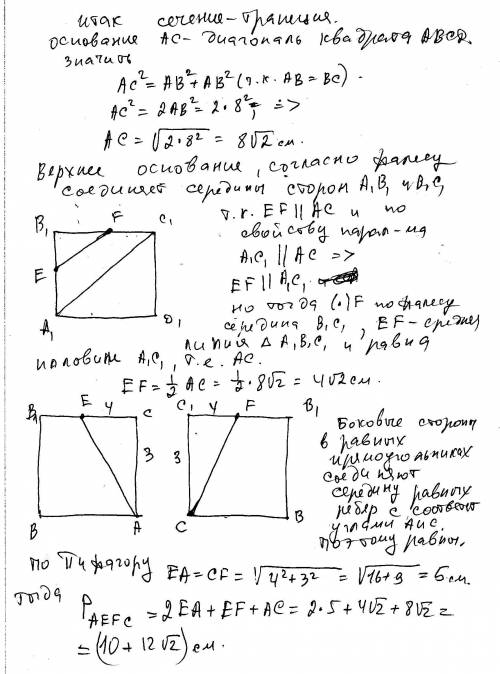 итак сечение-трапеция.
основание AC-диагональ квадрата ABCD.
значит
AC² = AB² + AB² (т.к. AB = BC).
AC² = 2AB² = 2·8², =>
AC = √2·8² = 8√2 см.
Верхнее основание, согласно фалесу
соединяет середины сторон A₁B₁ и B₁C₁
B₁ F C₁
E
A₁ D₁
т.к. EF || AC и по
свойству парал-да
A₁C₁ || AC =>
EF || A₁C₁
но тогда (·) F по фалесу
середина B₁C₁, EF-средняя
линия Δ A₁B₁C₁ и равна
половине A₁C₁, т.е. AC.
EF = ½ AC = ½·8√2 = 4√2 см.
B₁ E 4 C
3
B A
C₁ 4 F B₁
3
C B
Боковые стороны
в равных
прямоугольниках
соединяют
середину равных
ребер с соответ
углами A и C.
Поэтому равны.
по Пифагору EA = CF = √4²+3² = √16+9 = 5 см.
тогда
P AEFC = 2EA + EF + AC = 2·5 + 4√2 + 8√2 =
= (10 + 12√2) см.